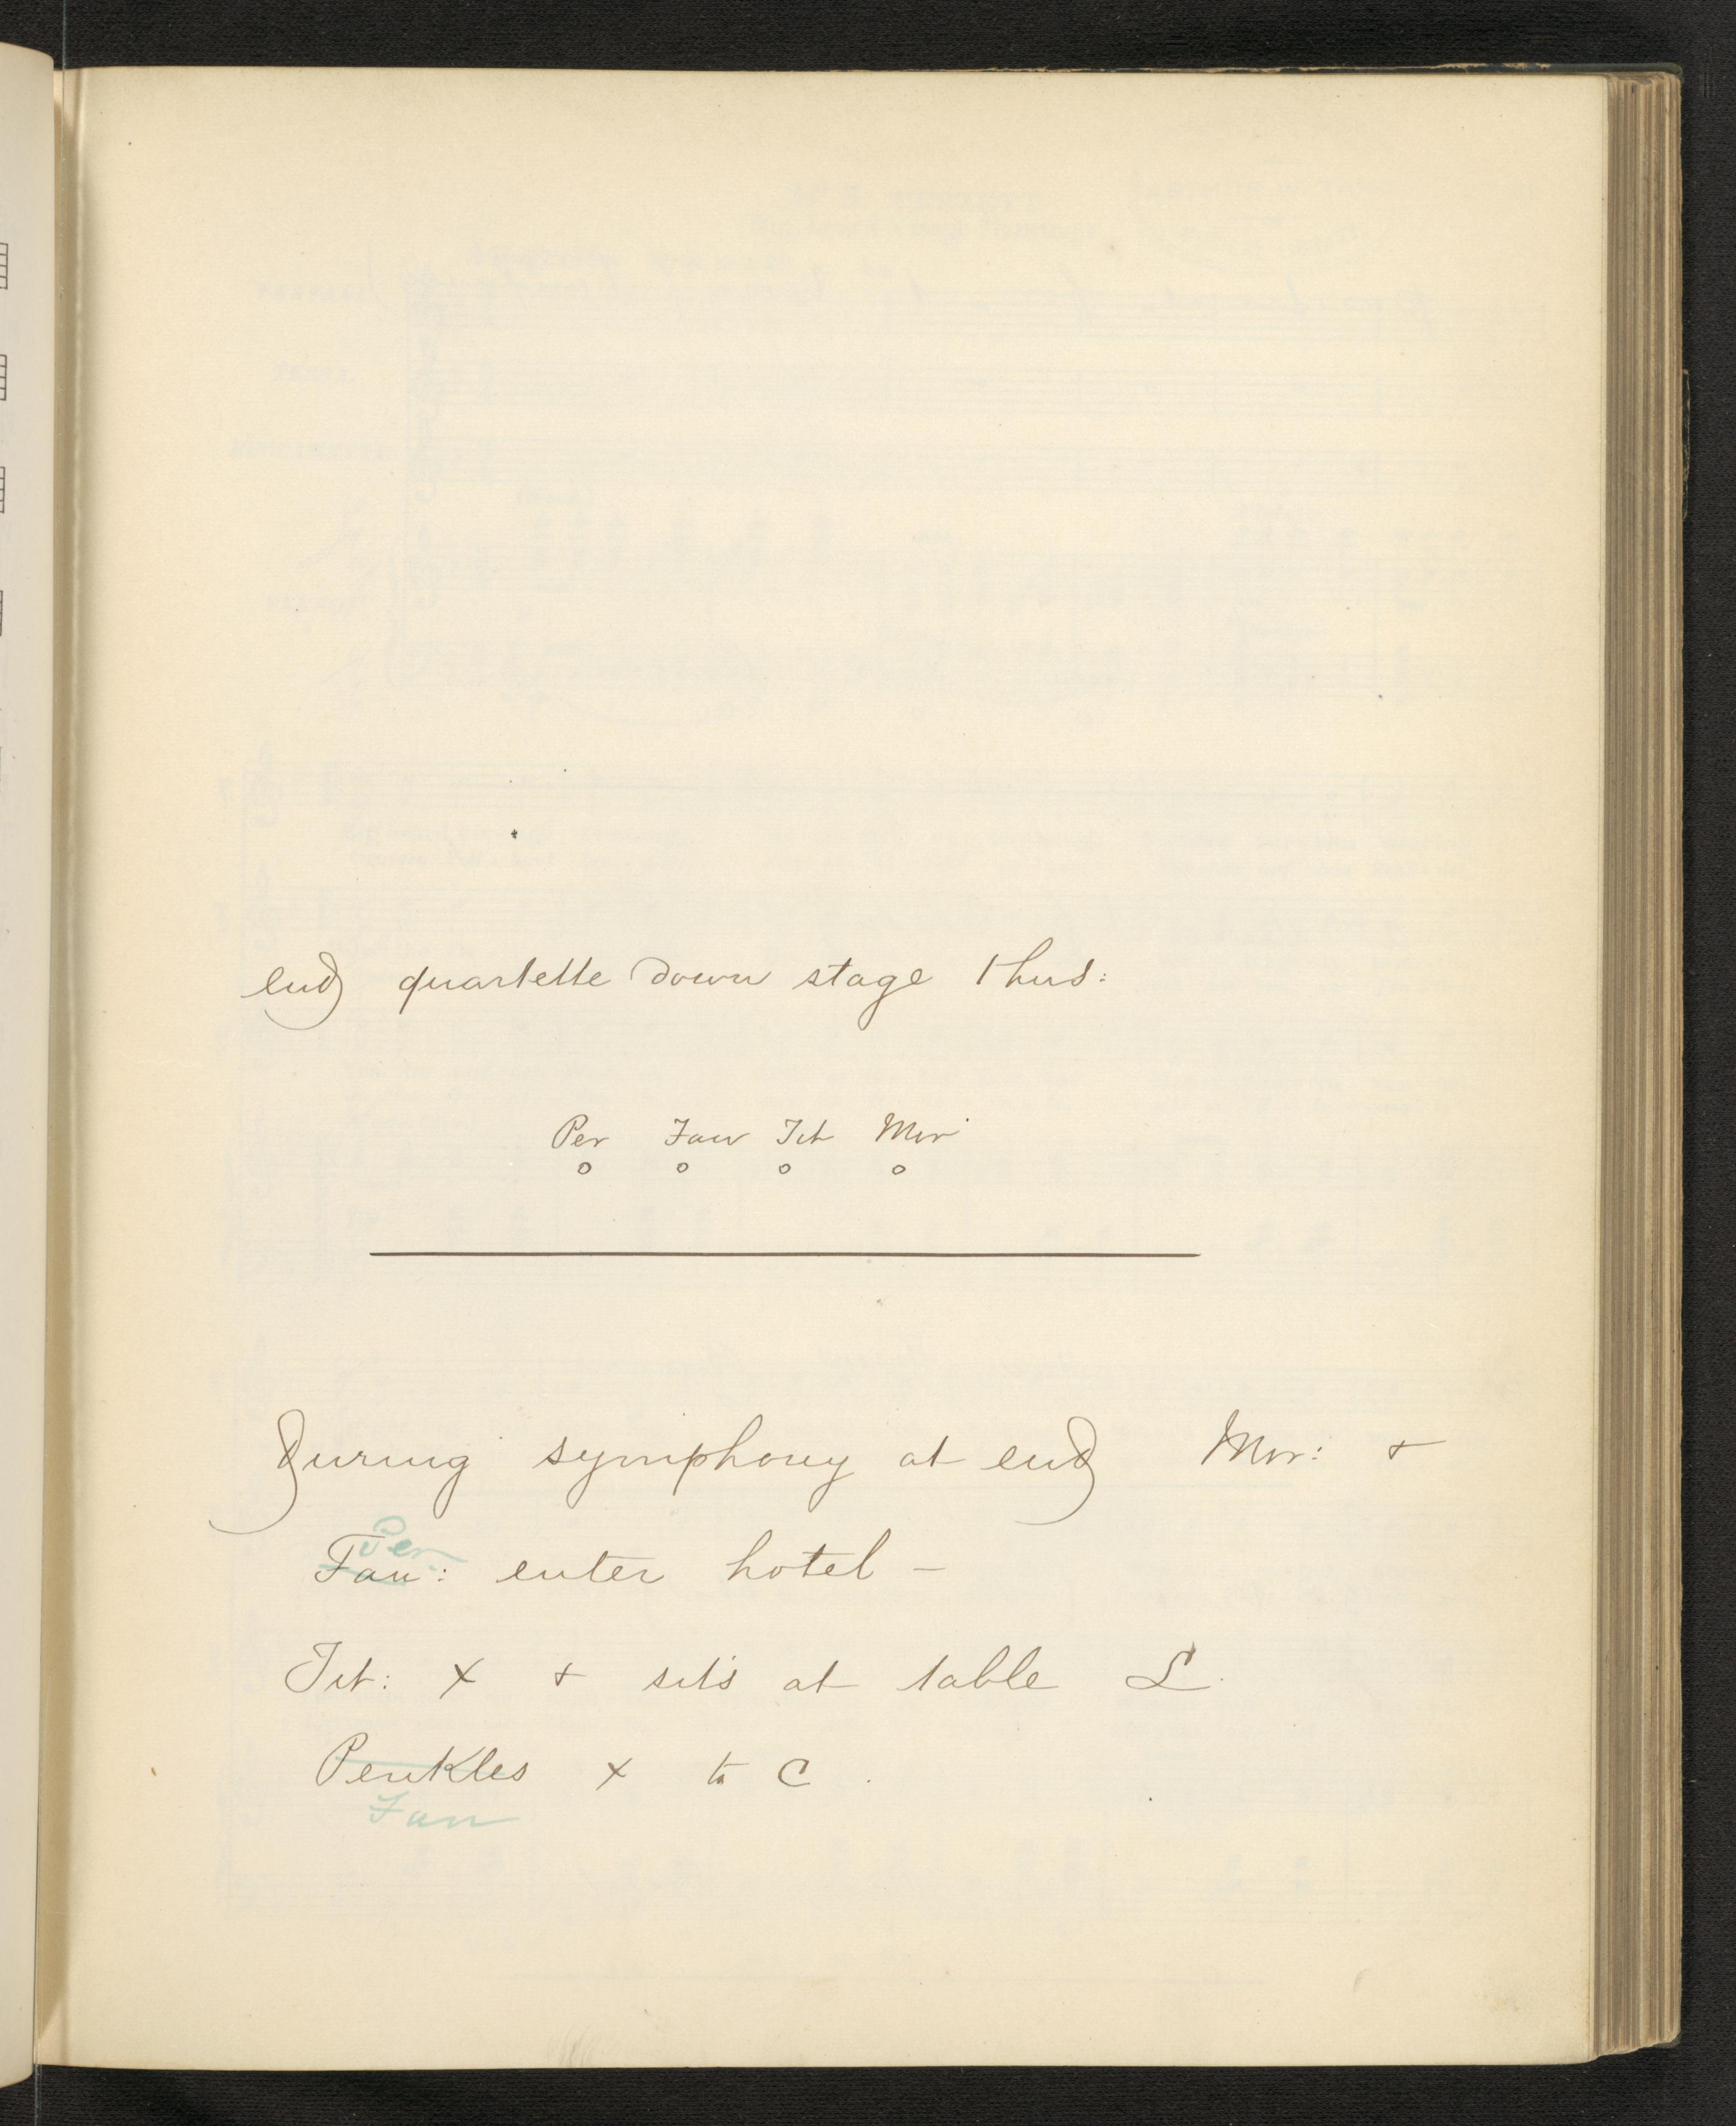 end quartette down stage thus:
Per Fan Tit Mir
o o o o
During symphony at end Mir: +
Per
Fan: enter hotel -
Tit: x + sits at table L.
Penkles x to C.
Fan